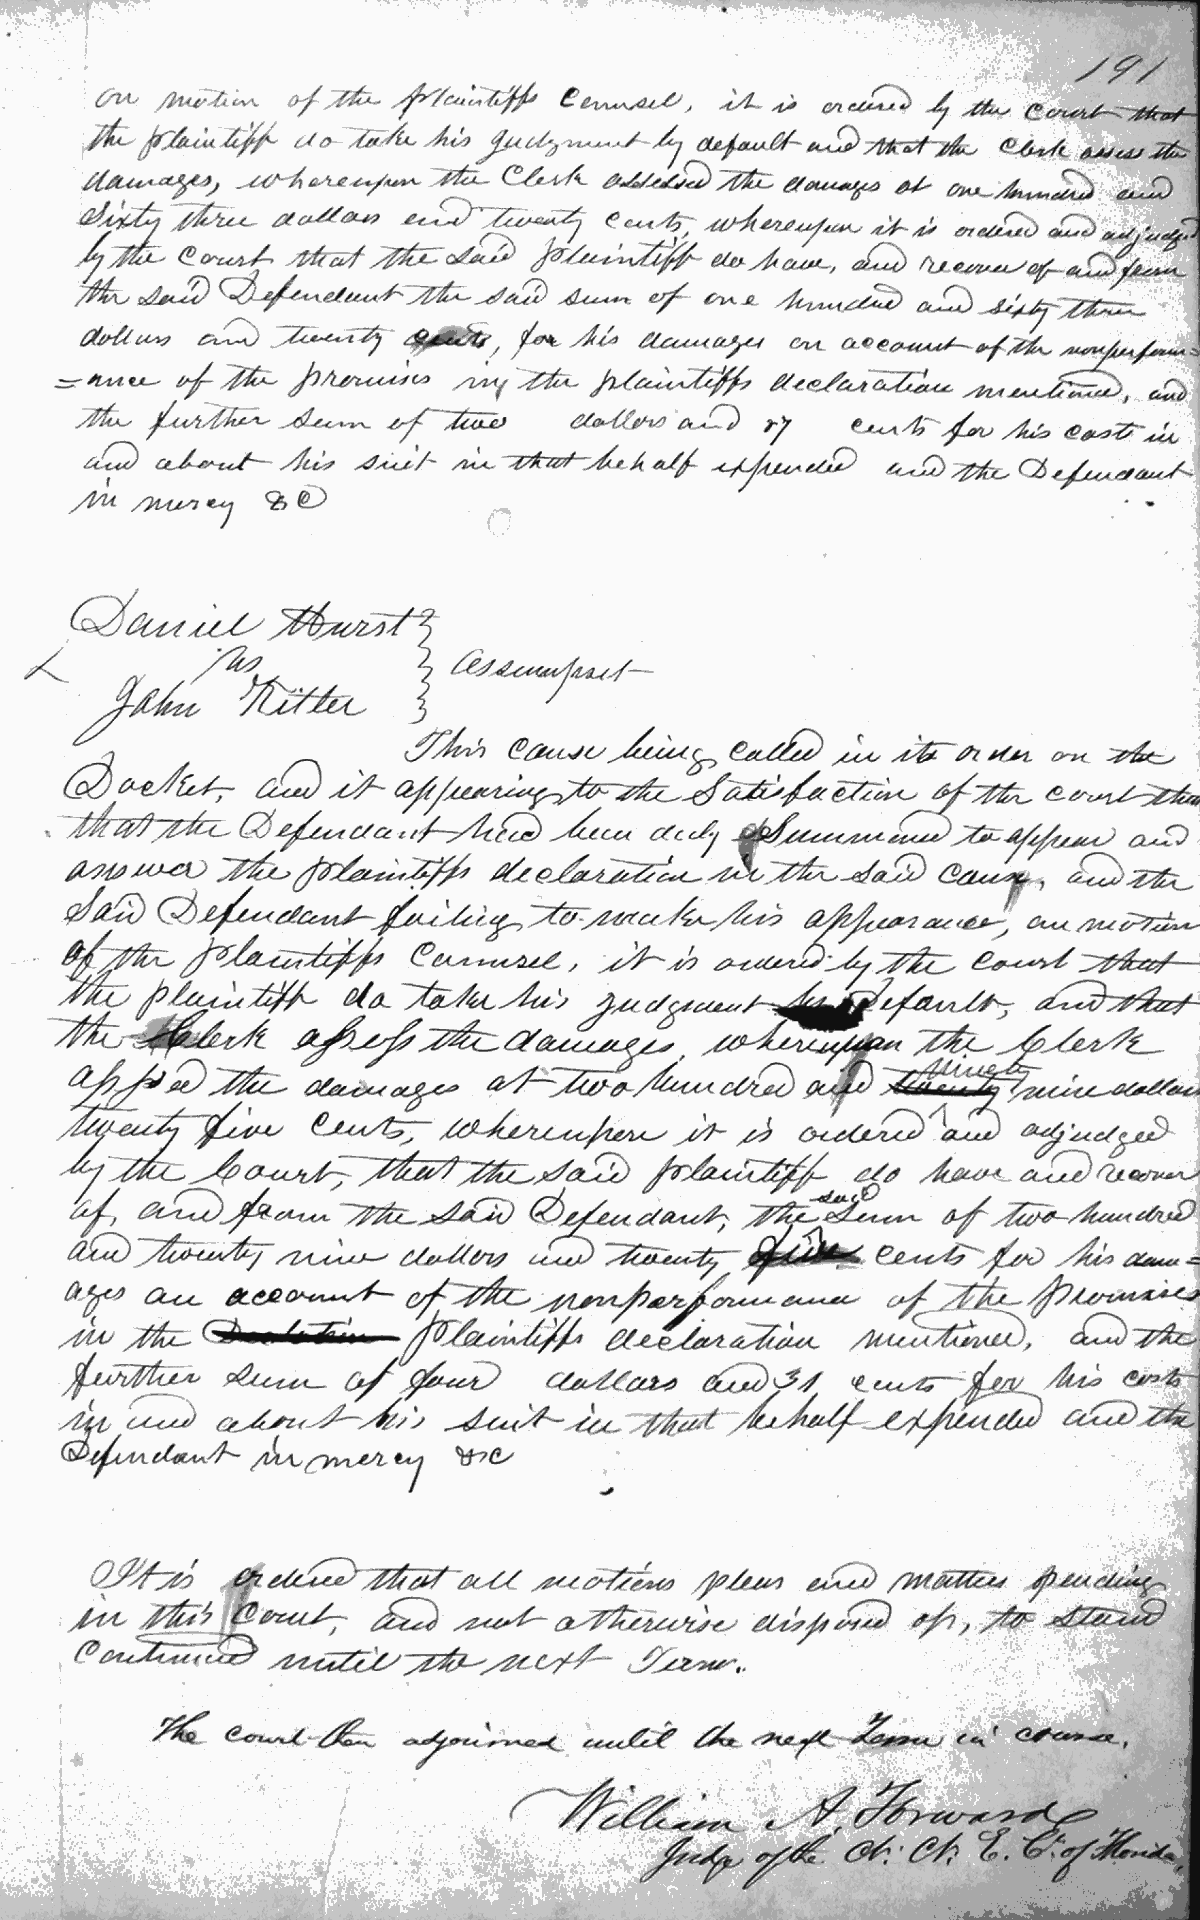 191
on motion of the plaintiffs Counsel, it is ordered by the Court that
the plaintiff do take his Judgment by default and that the Clerk assess the
damages, whereupon the Clerk assessed the damages at one hundred and
Sixty three dollars and twenty cents, whereupon it is ordered and adjudged
by the Court that the said plaintiff do have, and recover of and from
the said Defendant the said sum of one hundred and sixty three
dollars and twenty cents, for his damages on account of the nonperform=
=ance of the promises in the plaintiffs declaration mentioned, and
the further sum of two dollars and 87 cents for his costs in
and about his suit in that behalf expended and the Defendant
in mercy &C
Daniel Hurst
vs
John Ritter
Assumpset
This cause being called in its order on the
Docket, and it appearing to the Satisfaction of the court
that the Defendant had been duly Summoned to appear and
answer the plaintiffs declaration in the said cause, and the
Said Defendant failing to make his appearance, on motion
of the plaintiffs Counsel, it is ordered by the court that
the plaintiff do take his judgment by Default, and that
the Clerk assess the damages, whereupon the Clerk
the damages at two hundred and twenty ninety nine dollars
twenty five cents, whereupon it is ordered and adjudged
by the Court, that the said plaintiff do have and recover
of, and from the said Defendant, the said Sum of two hundred
and twenty nine dollars and twenty five cents for his dam=
ages on account of the nonperformance of the Promises
in the plaintiffs declaration mentioned, and the
further sum of four dollars and 31 cents for his costs
in and about his suit in that behalf expended and the
Defendant in mercy &c
It is ordered that all motions pleas and matters pending
in this Court, and not otherwise disposed of, to stand
Continued until the next Term.
The court then adjourned until the next Term in course.
William A. Forward
Judge of the Ct. Ct. E. Ct. of Florida,